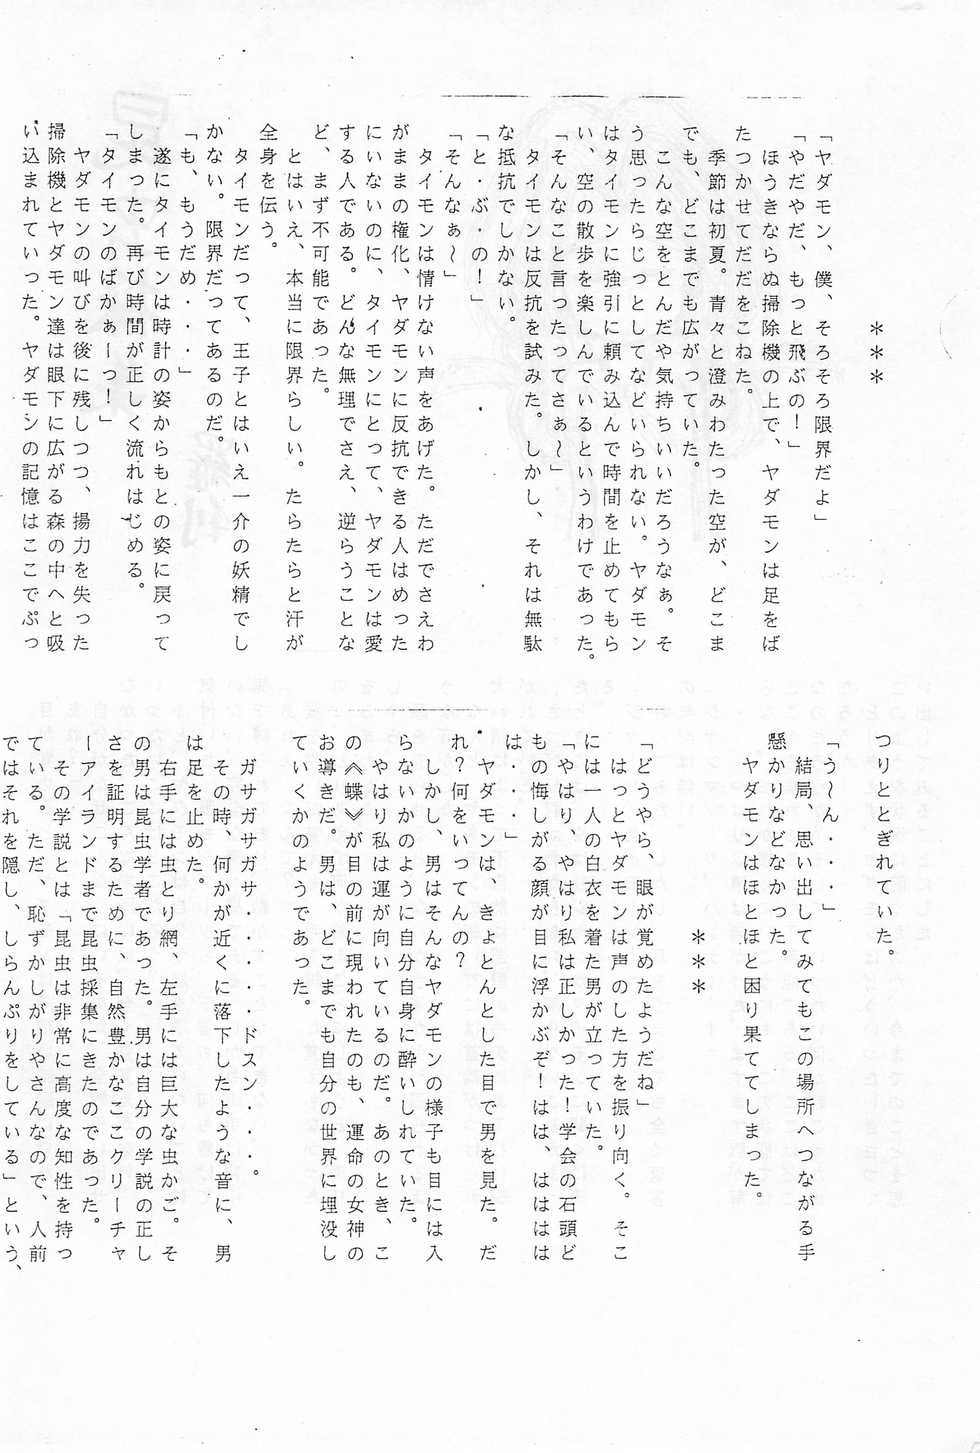 ＊＊＊
「ヤダモン、僕、そろそろ限界だよ」
「やだやだ、もっと飛ぶの！」
ほうきならぬ掃除機の上で、ヤダモンは足をば
たつかせてだだをこねた。
季節は初夏。青々と澄みわたった空が、どこま
でも、どこまでも広がっていた。
こんな空をとんだや気持ちいいだろうなぁ。そ
う思ったらじっとしてなどいられない。ヤダモン
はタイモンに強引に頼み込んで時間を止めてもら
い、空の散歩を楽しんでいるというわけであった。
「そんなこと言ったってさぁ～」
タイモンは反抗を試みた。しかし、それは無駄
な抵抗でしかない。
「と・ぶ・の！」
「そんなぁ～」
タイモンは情けない声をあげた。ただでさえわ
がままの権化、ヤダモンに反抗できる人はめった
にいないのに、タイモンにとって、ヤダモンは愛
する人である。どんな無理でさえ、逆らうことな
ど、まず不可能であった。
とはいえ、本当に限界らしい。たらたらと汗が
全身を伝う。
タイモンだって、王子とはいえ一介の妖精でし
かない。限界だってあるのだ。
「も、もうだめ・・・」
遂にタイモンは時計の姿からもとの姿に戻って
しまった。再び時間が正しく流れはじめる。
「タイモンのばかぁーっ！」
ヤダモンの叫びを後に残しつつ、揚力を失った
掃除機とヤダモン達は眼下に広がる森の中へと吸
い込まれていった。ヤダモンの記憶はここでぷっ
つりととぎれていた。
「う～ん・・・」
結局、思い出してみてもこの場所へつながる手
懸かりなどなかった。
ヤダモンはほとほと困り果ててしまった。
＊＊＊
「どうやら、眼が覚めたようだね」
はっとヤダモンは声のした方を振り向く。そこ
には一人の白衣を着た男が立っていた。
「やはり、やはり私は正しかった！学会の石頭ど
もの悔しがる顔が目に浮かぶぞ！はは、はははは
は・・・」
ヤダモンは、きょとんとした目で男を見た。だ
れ？何をいってんの？
しかし、男はそんなヤダモンの様子も目には入
らないかのように自分自身に酔いしれていた。
やはり私は運が向いているのだ。あのとき、こ
の《蝶》が目の前に現われたのも、運命の女神の
お導きだ。男は、どこまでも自分の世界に埋没し
ていくかのようであった。
ガサガサガサ・・・・ドスン・・・。
その時、何かが近くに落下したような音に、男
は足を止めた。
右手には虫とり網、左手には巨大な虫かご。そ
の男は昆虫学者であった。男は自分の学説の正し
さを証明するために、自然豊かなここクリーチャ
ーアイランドまで昆虫採集にきたのであった。
その学説とは「昆虫は非常に高度な知性を持っ
ている。ただ、恥ずかしがりやさんなので、人前
ではそれを隠し、しらんぷりをしている」という、